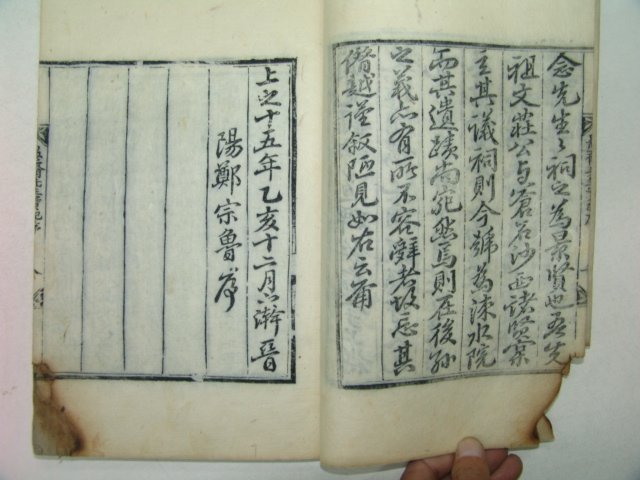 念先生之祠之爲景賢也吾先
祖文莊公與蒼石沙西諸賢實
主其議祠則今號爲涑水院
而其遺蹟尚宛然焉則在後孫
之義亦有所不容辭者故忘其
僭越謹叙陋見如右云爾
上之十五年乙亥十二月上澣晉
陽鄭宗魯序